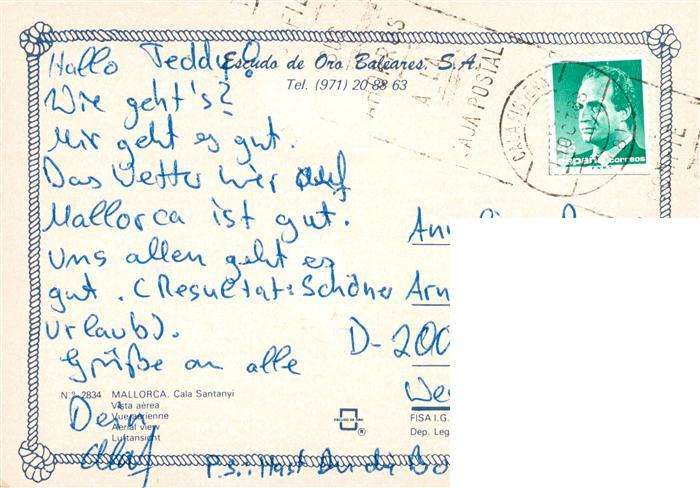 Hallo Teddy!
Escudo de Oro Baleares, S.A.
Tel. (971) 20 88 63
Wie geht's?
Mir geht es gut.
Das Wetter hier auf
Mallorca ist gut.
Uns allen geht es
gut. (Resultat: Schöner
Urlaub).
Grüße an alle
Dein
Olaf
P.S.: Hast Du die
CAJA POSTAL
españa correos
Arn
D-200
We
N.º 2834 MALLORCA. Cala Santanyi
Vista aérea
Vue aérienne
Aerial view
Luftansicht
ESCUDO DE ORO
®
FISA I.G.
Dep. Leg